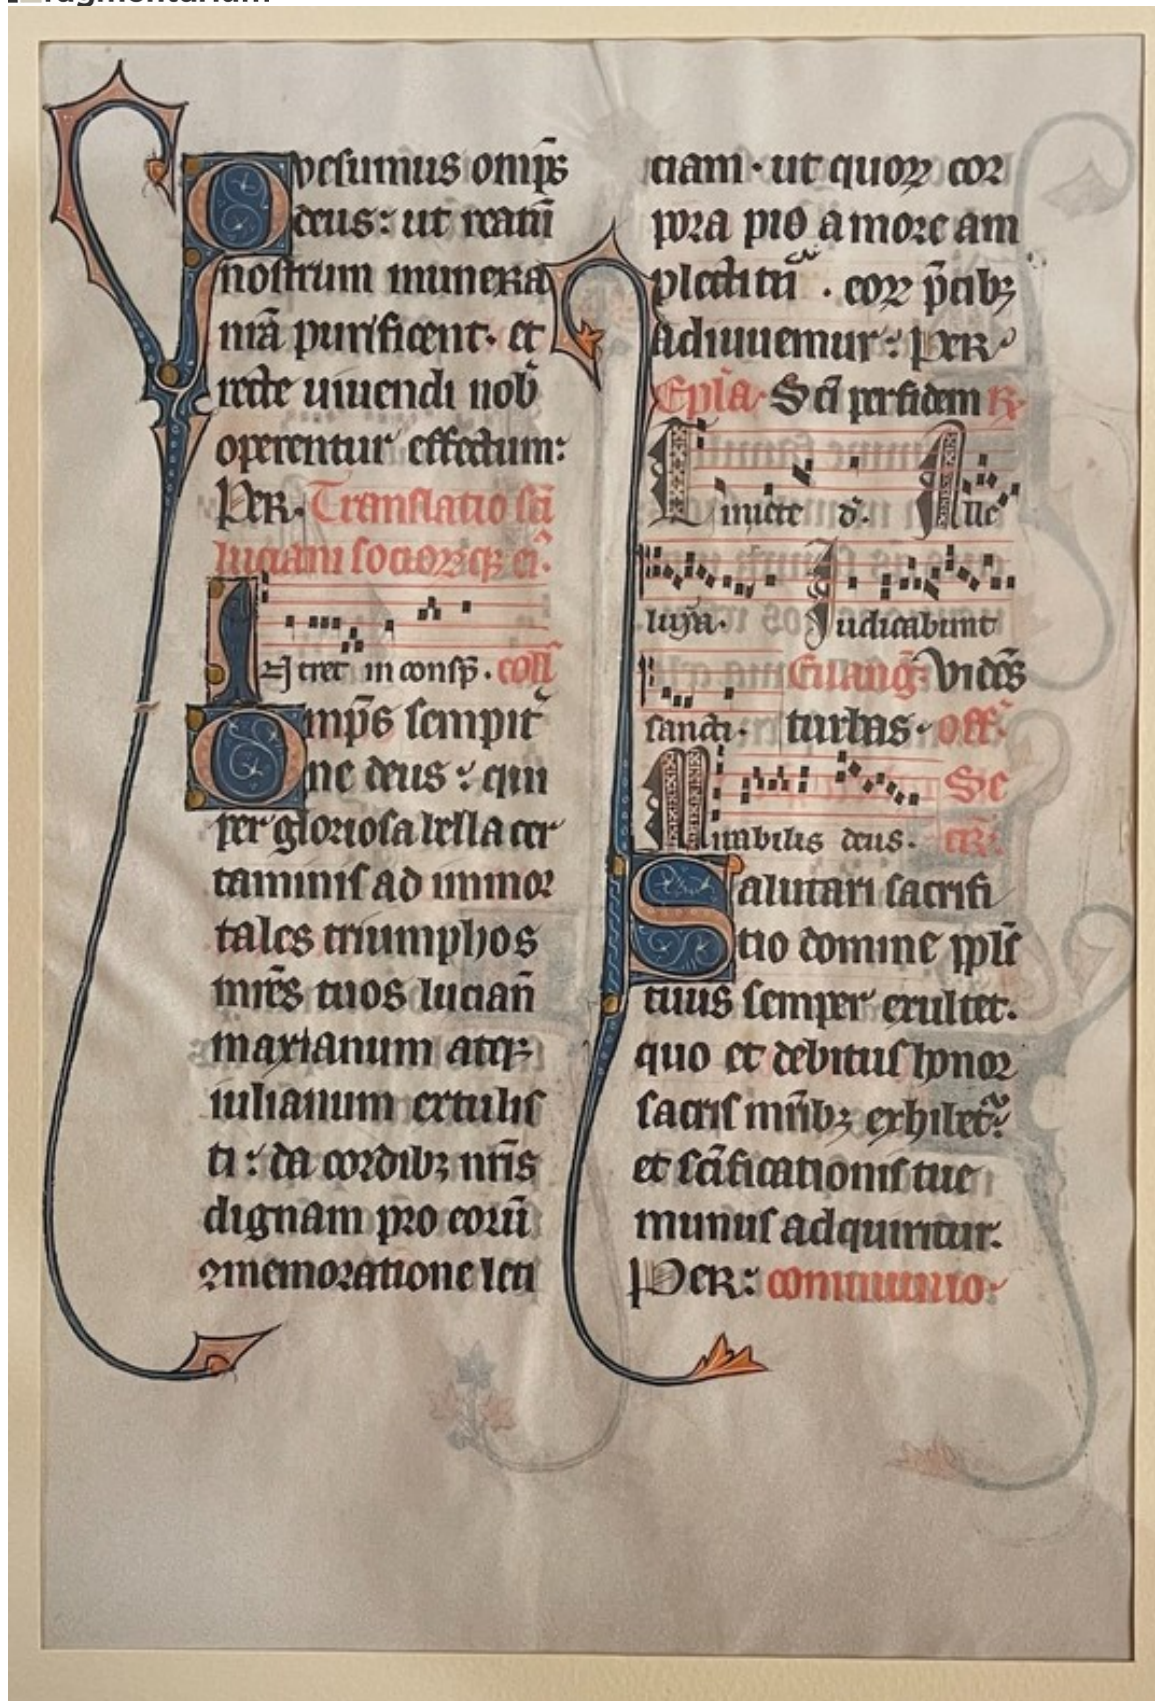 Quesumus omp̄s
deus: ut reatū
nostrum munera
nr̄a purificent. et
recte uiuendi nob̄
operentur effectum:
Per. Translatio sc̄i
luciani sociorꝝqꝫ ei᷒.
INtret in consp̄. coll̄
Omp̄s sempit̄
ne deus: qui
per gloriosa bella cer
taminis ad immor
tales triumphos
mr̄es tuos lucian̄
maxianum atqꝫ
iulianum extulis
ti: da cordibꝫ nr̄is
dignam pro eorū
ꝯmemoratione leti
ciam. ut quoꝝ cor
pora pio amore am
plectitū. eoꝝ p̄cibꝫ
adiuuemur: Per
Ep̄la. Sc̄i per fidem ℟.
Timete d̄. Alle
luya. Iudicabunt
sancti. Euanḡ. Videns
turbas. off̄.
Mirabilis deus. Se
cr̄.
Salutari sacrifi
tio domine ppl̄s
tuus semper exultet.
quo et debitus honor
sacris mr̄ibꝫ exhibet᷑:
et sc̄ificationis tue
munus adquiritur.
Per: communio.